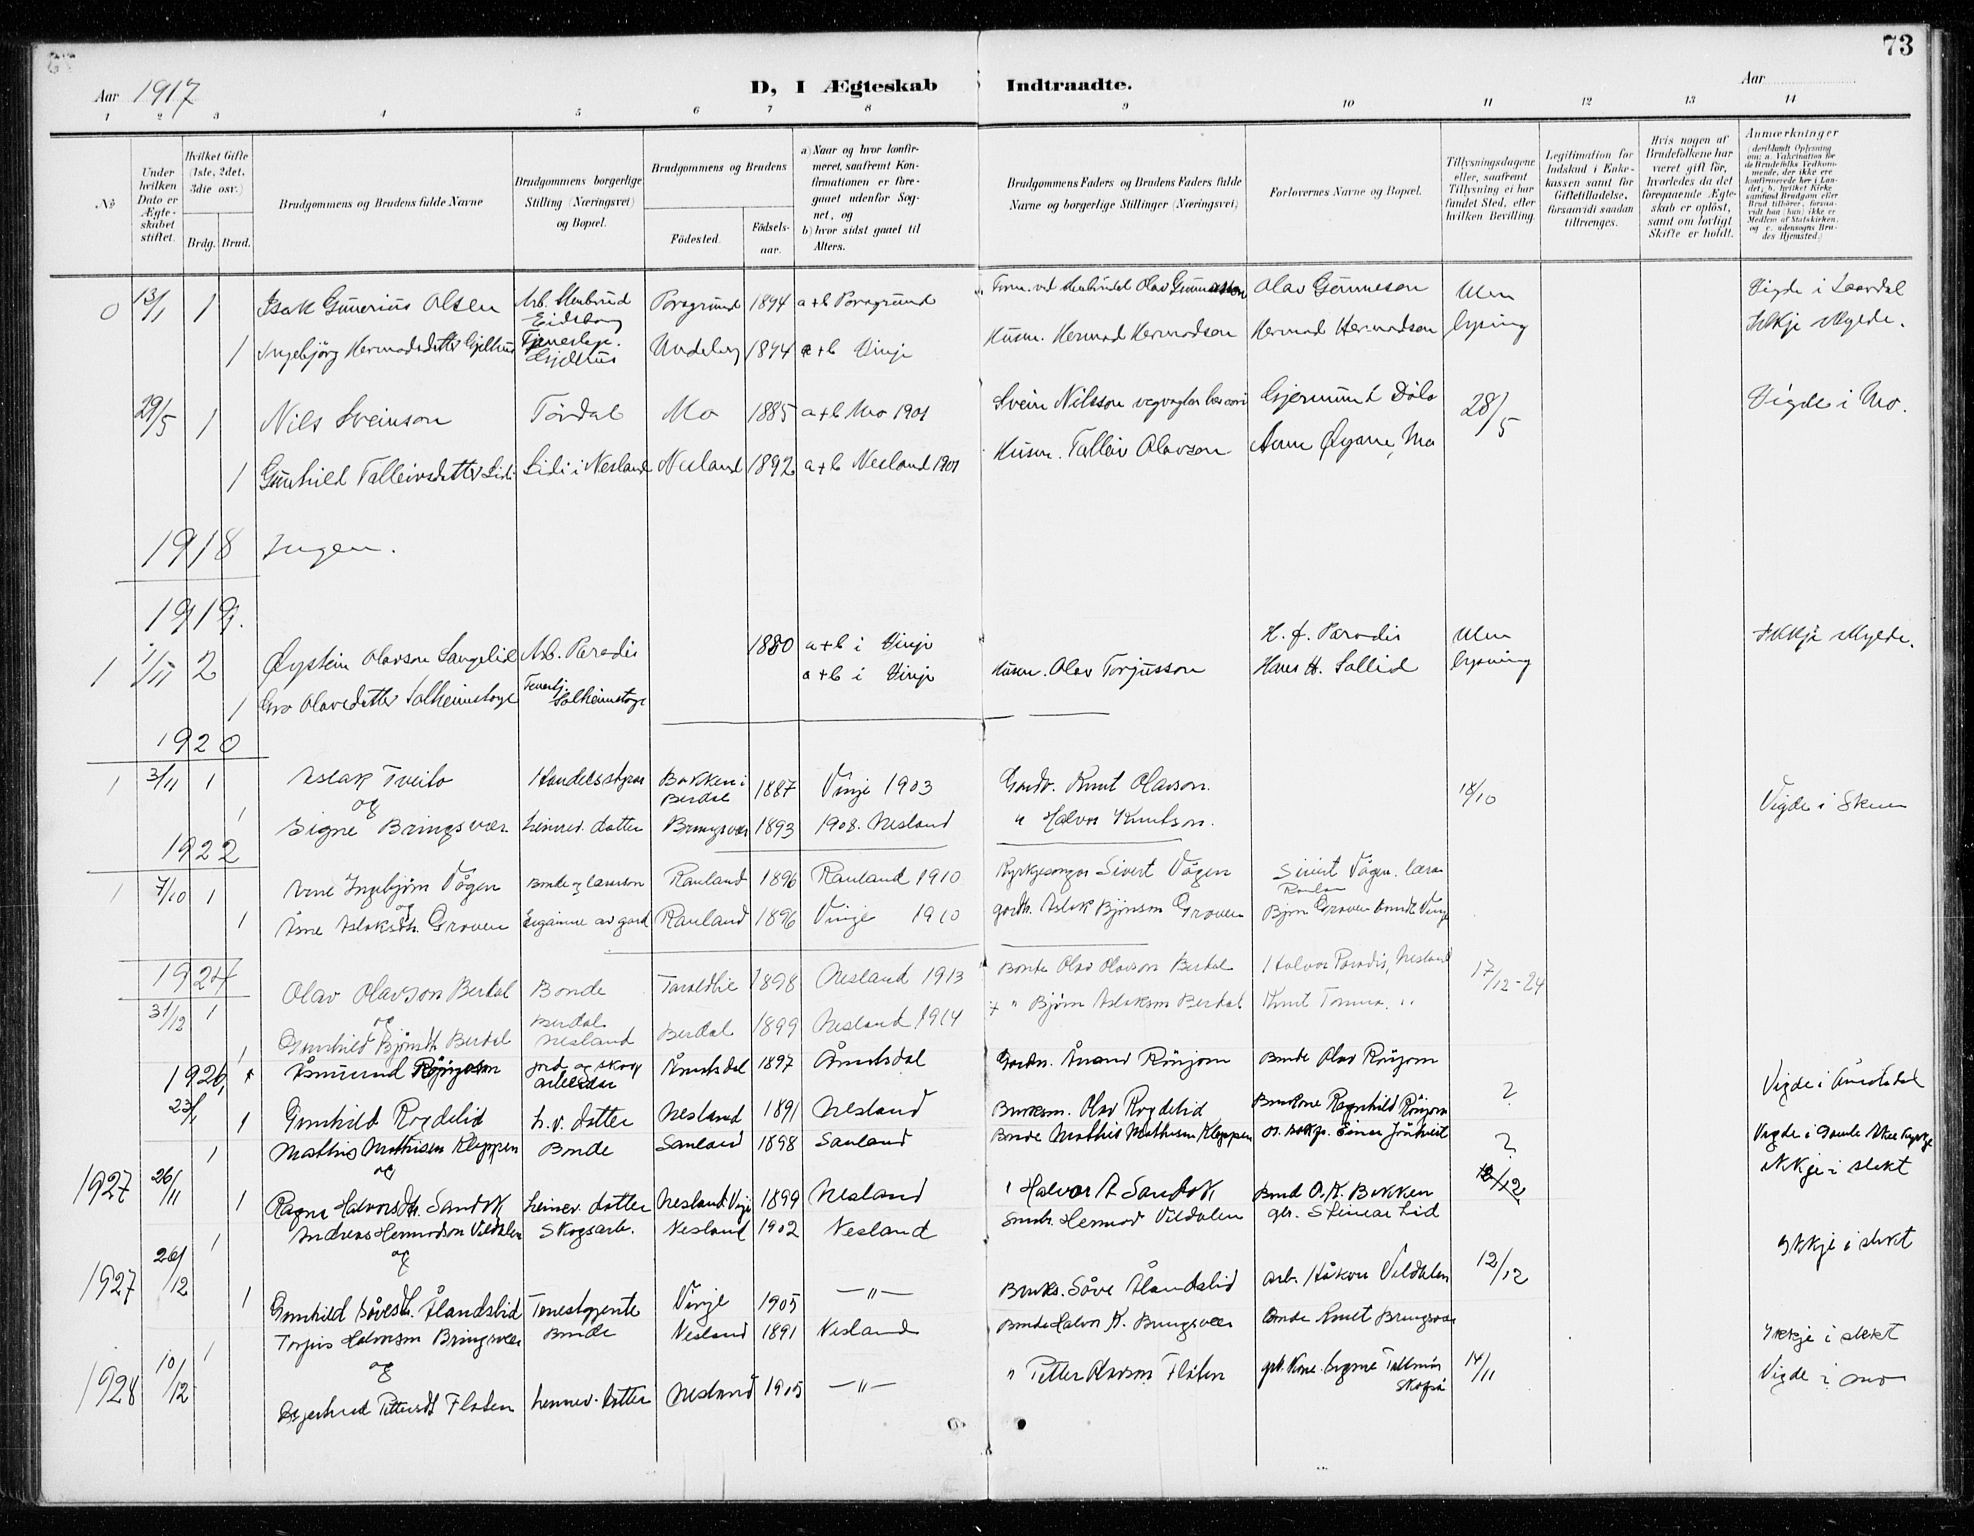 73
Aar 1917
D, I Ægteskab Indtraadte.
Aar
1 2 3 4 5 6 7 8 9 10 11 12 13 14
No
Under hvilken Dato er Ægteskabet stiftet.
Hvilket Gifte (1ste, 2det, 3die osv.)
Brdg. Brud.
Brudgommens og Brudens fulde Navne
Brudgommens borgerlige Stilling (Næringsvei) og Bopæl.
Brudgommens og Brudens
Fødested.
Fødsels-aar.
a) Naar og hvor konfirmeret, saafremt Konfirmationen er foregaaet udenfor Sognet, og
b) hvor sidst gaaet til Alters.
Brudgommens Faders og Brudens Faders fulde Navne og borgerlige Stillinger (Næringsvei)
Forlovernes Navne og Bopæl.
Tillysningsdagene eller, saafremt Tillysning ei har fundet Sted, efter hvilken Bevilling.
Legitimation for Indskud i Enkekassen samt for Giftetilladelse, forsaavidt saadan tiltrænges.
Hvis nogen af Brudefolkene har været gift før, hvorledes da det foregaaende Ægteskab er opløst, samt om lovligt Skifte er holdt.
Anmærkninger
(deriblandt Oplysning om: a. Vakcination for de Brudefolks Vedkommende, der ikke ere konfirmerede her i Landet, b. hvilket Kirkesamfund Brudgom eller Brud tilhører, forsaavidt han (hun) ikke er Medlem af Statskirken, og c. udensogns Brudes Hjemsted.)
0 13/1 1 Isak Gunerius Olsen Arb. Eidsborg Porsgrund 1894 a+b Porsgrund Olav Gunnesson Uten Vigde i Laardal
1 Ingebjörg Hermodsdatter Gjelhus Tjenestepi. Gjelhus 1894 a+b Vinje Husm. Hermod Hermodson Hermod Hermodson lysning Ikkje skylde.
29/5 1 Nils Sveinson Tördal Mo 1885 a+b Mo 1901 Svein Nilsson Gjermund Dölo 28/5 Vigde i Mo.
1 Gunhild Talleivsdatter Lid Lidi i Nesland Nesland 1892 a+b Nesland 1907 Husm. Talleiv Olavson Øygarne, Mo
1918 Ingen.
1919.
1 1/11 2 Øystein Olavson Langelid Arb. Paradis 1880 a+b i Vinje H. J. Paradis Uten Ikkje skylde.
1 Gro Olavsdatter Solheimstoga Tenestj. Solheimstoga a+b i Vinje Husm. Olav Torjusson Hans H. Sollid lysning
1920
1 3/11 1 Aslak Tveito Handelsstyrar Bakken i Berdal 1887 Vinje 1903 Gardb. Knut Olavson. 18/10 Vigde i Skien
og
1 Signe Bringsvær heimev. datter Bringsvær 1893 1908. Nesland " Halvor Knutson.
1922
1 7/10 1 Arne Ingebjörn Vågen Bonde og Rauland 1896 Rauland 1910 Kyrkjesongar Sivert Vågen Sivert Vågen. lærar Rauland
og
1 Åsne Aslaksdtr. Groven Eigarinne av gard Rauland 1896 Vinje 1910 gardbr. Aslak Björnson Groven Björn Groven bonde Vinje
1924 Olav Olavson Berdal Bonde Taraldlie 1898 Nesland 1913 Bonde Olav Olavson Berdal Halvor Paradis, Nesland 17/12-24
31/12 1 og
1 Gunhild Björnsdt. Berdal Berdal Nesland Berdal 1899 Nesland 1914 + " Björn Aslakson Berdal Knut "
1926 Åsmund Rönjom jord og skog arbeidar Åmotsdal 1897 Åmotsdal Gardbr. Ånund Rönjom Bonde Olav Rönjom Vigde i Åmotsdal
23/1 1 Gunhild Rogdelid h.v. datter Nesland 1891 Nesland Bruksm. Olav Rogdelid Brukone Ragnhild Rönjom ?
1 Mathis Mathisen Kleppen Bonde Sauland 1898 Sauland Bonde Mathis Mathisen Kleppen Einar ? Vigde i Gamle
1927 26/11 og Ikkje i slekt
1 Ragne Halvorsdtr. Sandok heimev. datter Nesland Vinje 1899 Nesland " Halvor A Sandok Bond O. K. Bekken 12/12
1 Andreas Hermodson Vildalen Skogsarb. Nesland 1902 Nesland Hermod Vildalen Steinar Lid Ikkje i slekt
1927 26/12 og
1 Gunhild Såvesdt. Ålandslid Tenestgjente Vinje 1905 —"— Bruks. Såve Ålandslid arb. Håkon Vildalen 12/12
1 Torjus Halvorson Bringsvær Bonde Nesland 1891 Nesland Bonde Halvor K. Bringsvær Bonde Knut Bringsvær Ikkje i slekt
1928 10/12 og
Gjertrud Pettersdt Floten heimev. datter Nesland 1905 —"— " Petter Olavson Floten Kone Signe 14/11 Vigde i Mo